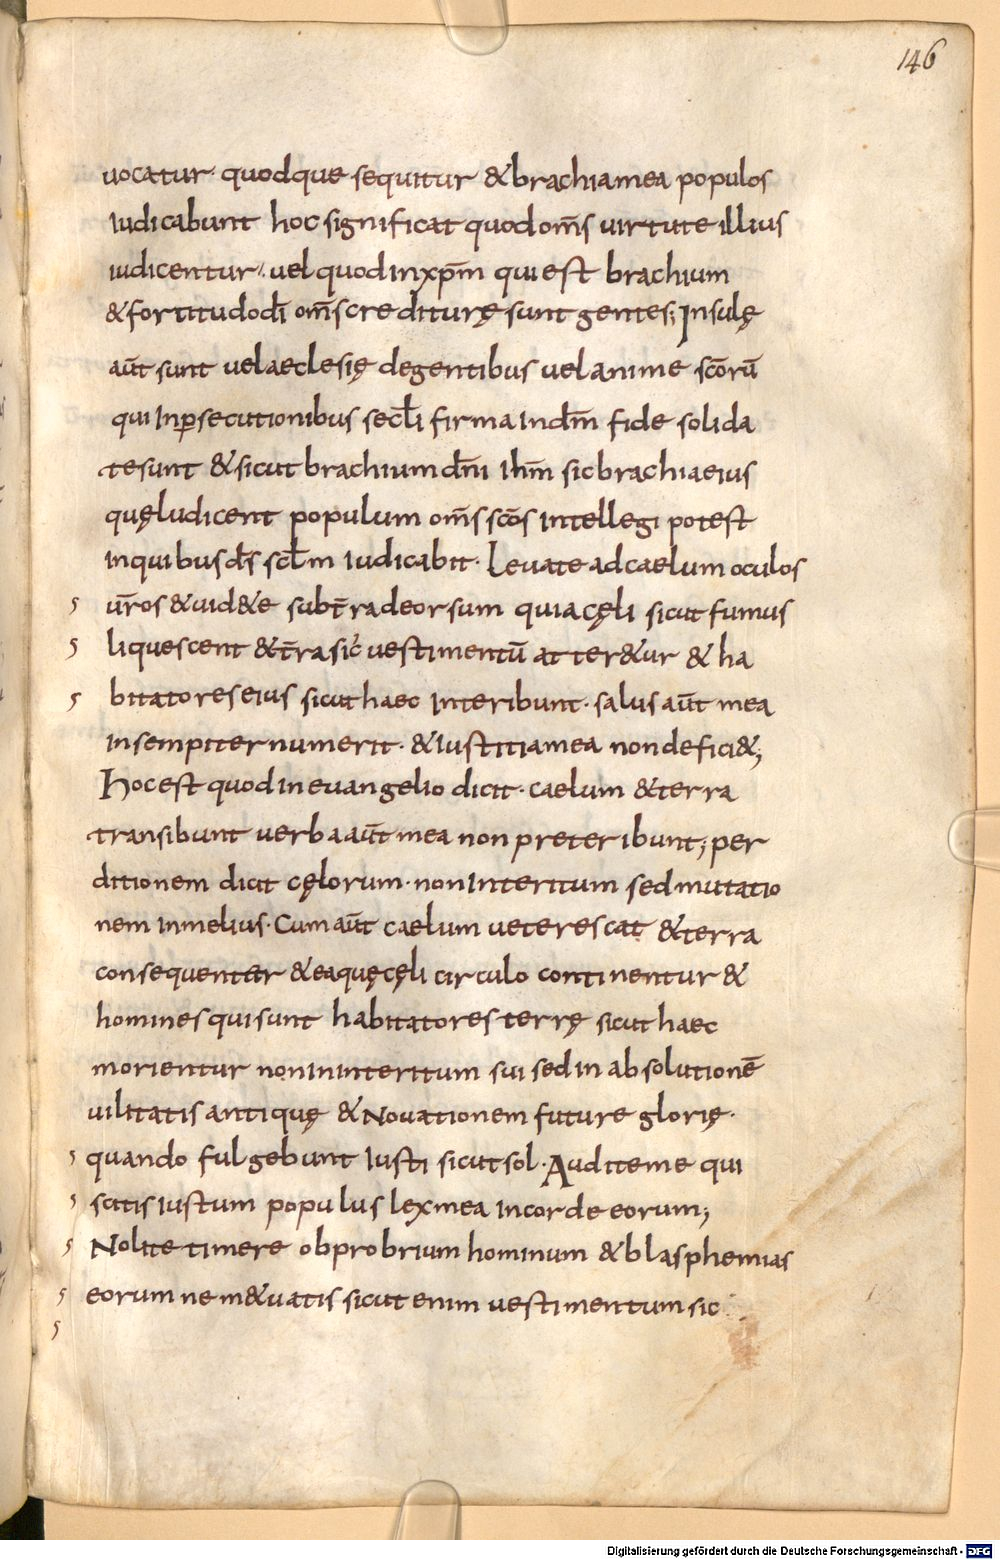 146
uocatur· quodque sequitur & brachia mea populos
iudicabunt hoc significat quod om̄s uirtute illius
iudicentur· uel quod in xp̄m qui est brachium
& fortitudo dī om̄s crediturę sunt gentes; Insulę
aūt sunt uel aeclesię degentibus uel anime sc̄orū
qui in ꝑsecutionibus secl̄i firma in dm̄ fide solida
te sunt & sicut brachium dn̄i ihm̄ sic brachia eius
quę Iudicent populum om̄s sc̄os intellegi potest
in quibus ds̄ scl̄m iudicabit· Leuate ad caelum oculos
ur̄os & uid&e subt̄ra deorsum quia cęli sicut fumus
liquescent & t̄ra sic̄ uestimentū at ter&ur & ha
bitatores eius sicut haec interibunt· salus aūt mea
in sempiternum erit· & iustitia mea non defici&;
Hoc est quod in euangelio dicit· caelum & terra
transibunt uerba aūt mea non preteribunt; per
ditionem dicit cęlorum· non interitum sed mutatio
nem in melius· Cum aūt caelum ueterescat & terra
consequenter & ea quę cęli circulo continentur &
homines qui sunt habitatores terrę sicut haec
morientur non in interitum sui sed in absolutionē
uilitatis antiquę & Nouationem future glorię·
quando fulgebunt iusti sicut sol· Audite me qui
scitis iustum populus lex mea in corde eorum;
Nolite timere obprobrium hominum & blasphemias
eorum ne m&uatis sicut enim uestimentum sic
Digitalisierung gefördert durch die Deutsche Forschungsgemeinschaft - DFG